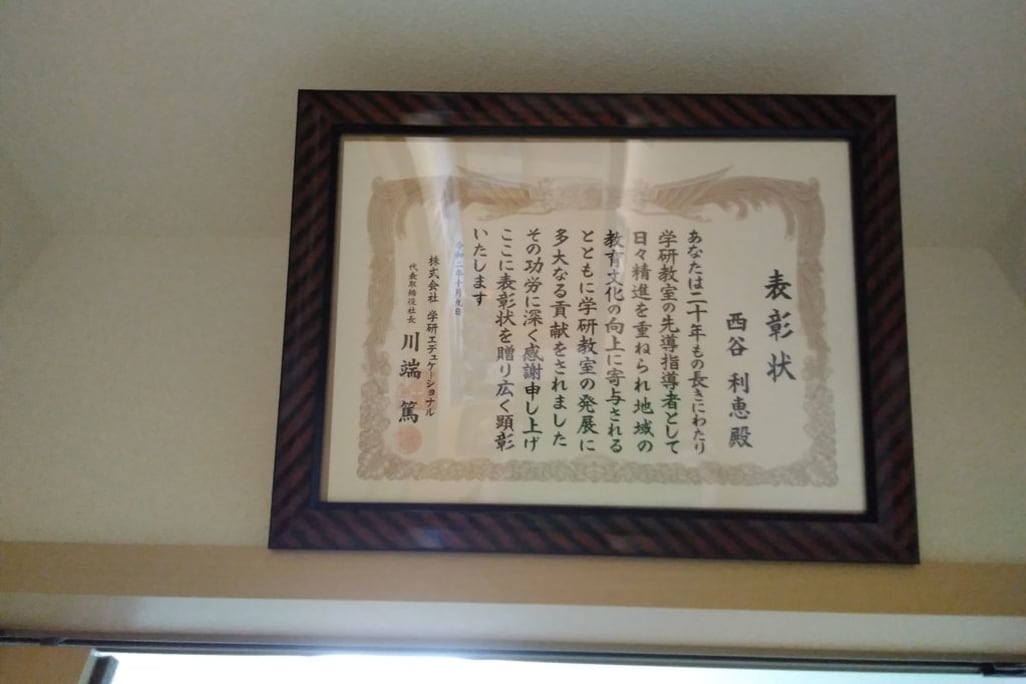 表彰状
西谷 利恵 殿
あなたは二十年もの長きにわたり
学研教室の先導指導者として
日々精進を重ねられ地域の
教育文化の向上に寄与される
とともに学研教室の発展に
多大なる貢献をされました
その功労に深く感謝申し上げ
ここに表彰状を贈り広く顕彰
いたします
株式会社 学研エデュケーショナル
代表取締役社長 川端 篤